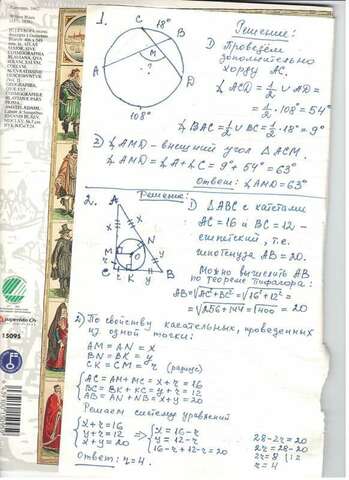 1.
C 18°
B
M
?
A
D
108°
Решение:
1) Проведём
дополнительно
хорду AC.
∠ACD = 1/2 ∪ AD =
= 1/2 · 108° = 54°
∠BAC = 1/2 ∪ BC = 1/2 · 18° = 9°
2) ∠AMD – внешний угол △ACM
∠AMD = ∠A + ∠C = 9° + 54° = 63°
Ответ: ∠AMD = 63°
2.
A
x
x
N
M
O
y
C
K
y
B
Решение:
1) △ABC с катетами
AC = 16 и BC = 12 –
египетский, т.е.
гипотенуза AB = 20.
Можно вычислить AB
по теореме Пифагора:
AB = √AC² + BC² = √16² + 12² =
= √256 + 144 = √400 = 20
2) По свойству касательных, проведенных
из одной точки:
AM = AN = x
BN = BK = y
CK = CM = r (радиус)
AC = AM + MC = x + r = 16
BC = BK + KC = y + r = 12
AB = AN + NB = x + y = 20
Решаем систему уравнений
x + r = 16
y + r = 12
x + y = 20
⇒
x = 16 – r
y = 12 – r
16 – r + 12 – r = 20
28 – 2r = 20
2r = 28 – 20
2r = 8 |:2
r = 4
Ответ: r = 4.
15095